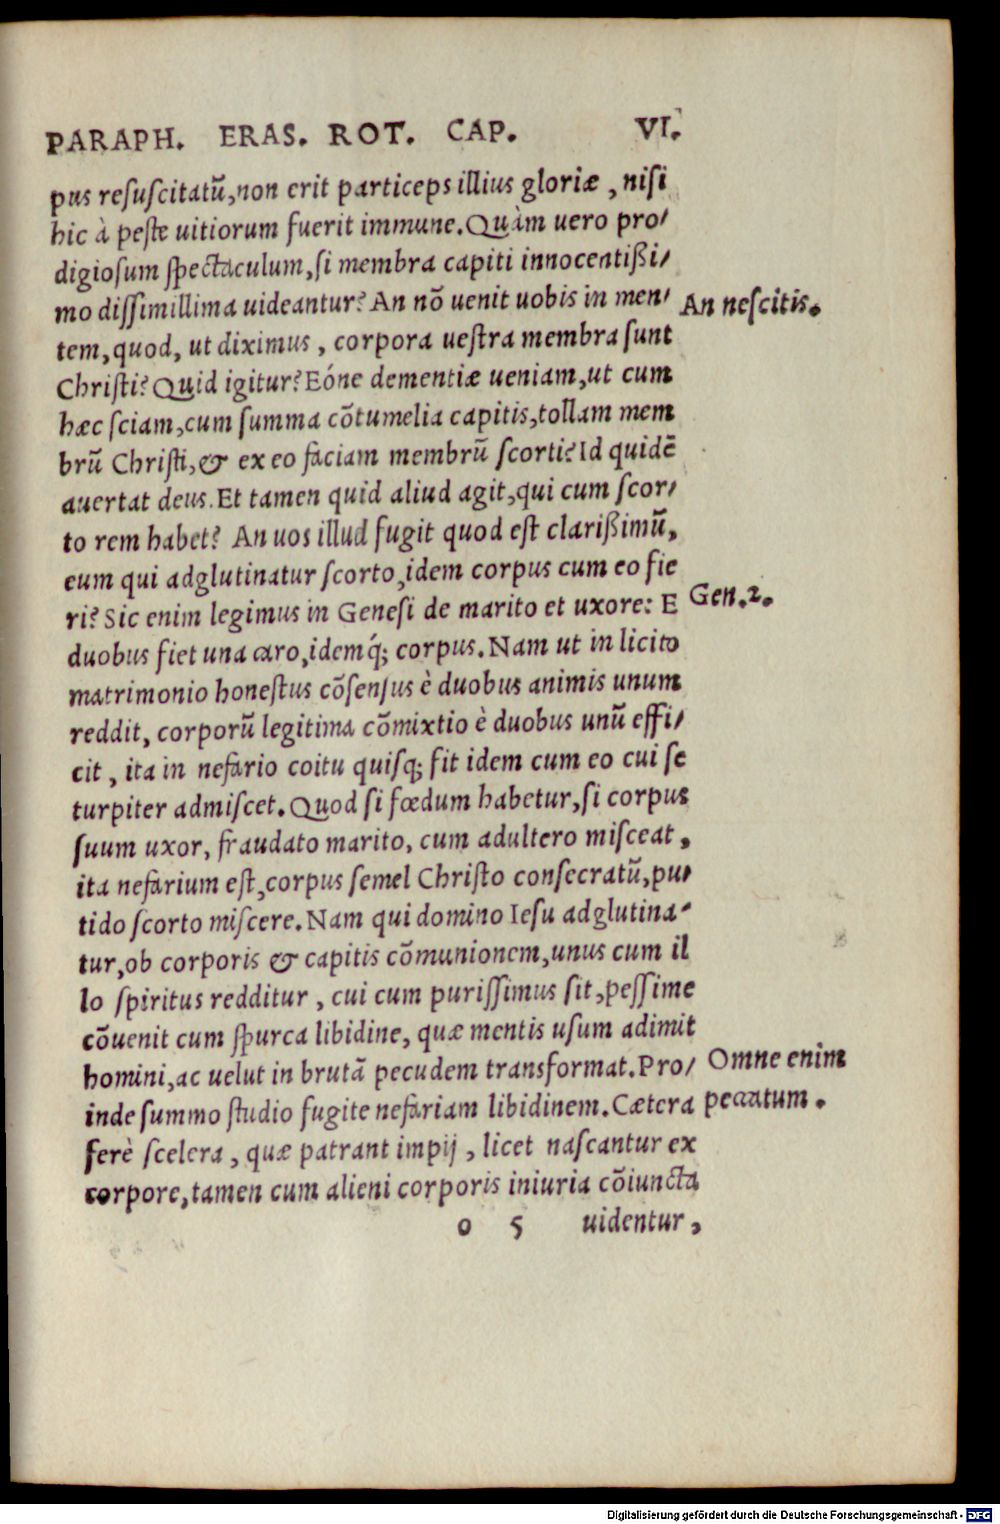 PARAPH. ERAS. ROT. CAP. VI.
pus resuscitatũ, non erit particeps illius gloriæ, nisi
hic à peste uitiorum fuerit immune. Quàm uero pro/
digiosum spectaculum, si membra capiti innocentißi/
mo dissimillima uideantur? An nõ uenit uobis in men/
An nescitis.
tem, quod, ut diximus, corpora uestra membra sunt
Christi? Quid igitur? Eóne dementiæ ueniam, ut cum
hæc sciam, cum summa cõtumelia capitis, tollam mem
brũ Christi, & ex eo faciam membrũ scorti? Id quidẽ
auertat deus. Et tamen quid aliud agit, qui cum scor/
to rem habet? An uos illud fugit quod est clarißimũ,
eum qui adglutinatur scorto, idem corpus cum eo fie
ri? Sic enim legimus in Genesi de marito et uxore: E
Gen. 2.
duobus fiet una caro, idemq́; corpus. Nam ut in licito
matrimonio honestus cõsensus è duobus animis unum
reddit, corporũ legitima cõmixtio è duobus unũ effi/
cit, ita in nefario coitu quisq; fit idem cum eo cui se
turpiter admiscet. Quod si fœdum habetur, si corpus
suum uxor, fraudato marito, cum adultero misceat,
ita nefarium est, corpus semel Christo consecratũ, pu/
tido scorto miscere. Nam qui domino Iesu adglutina/
tur, ob corporis & capitis cõmunionem, unus cum il
lo spiritus redditur, cui cum purissimus sit, pessime
cõuenit cum spurca libidine, quæ mentis usum adimit
homini, ac uelut in brutã pecudem transformat. Pro/
Omne enim
inde summo studio fugite nefariam libidinem. Cætera
peccatum.
ferè scelera, quæ patrant impij, licet nascantur ex
corpore, tamen cum alieni corporis iniuria cõiuncta
o 5 uidentur,
Digitalisierung gefördert durch die Deutsche Forschungsgemeinschaft - DFG